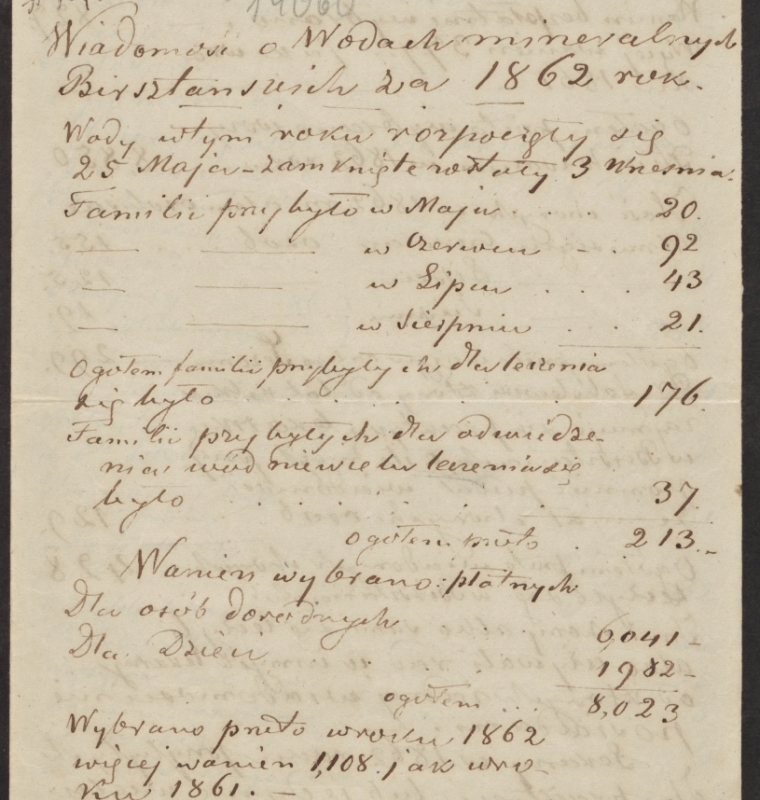 14060
Wiadomość o Wodach mineralnych
Birsztańskich za 1862 rok.
Wody wtym roku rozpoczęły się
25 Maja - zamknięte zostały 3 Wresnia.
Familii przybyło w Maju . . . 20.
— — w Czerwcu - . . 92
— — w Lipcu . . . 43
— — w Sierpniu . . . 21.
Ogołem familii przybyłych dla leczenia
się było . . . . . . 176.
Familii przybyłych dla odwidze-
nia wód niewcelu leczenia się
było . . . . . . 37.
ogołem . 213.-
Wanien wybrano: płatnych
Dla osób dorosłych 6,041 -
Dla Dzieci . . . 1982 -
ogołem . . . 8,023
Wybrano wroku 1862
więcej wanien 1,108. jak wro-
ku 1861. —